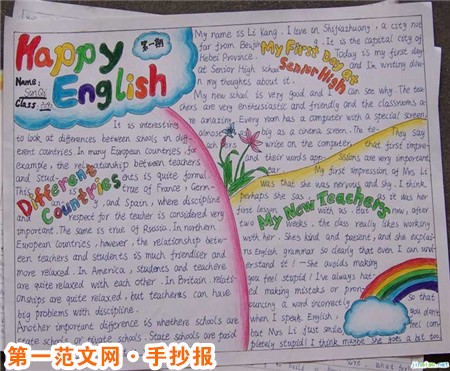 Happy
English
第一期
Name:
Class:
My name is Li Kang. I live in Shijiazhuang, a city not
far from Beijing. It is the capital city of
Hebei Province. Today is my first day
at Senior High school and I'm writing down
my thoughts about it.
My First Day at
Senior High
My new school is very good and I can see why. The tea-
chers are very enthusiastic and friendly and the classrooms a-
re amazing. Every room has a computer with a special screen,
almost as big as a cinema screen. The te- They say
write on the computer, that first impre-
and their words app- ssions are very important
My first impression of Mrs Li
was that she was nervous and shy. I think
perhaps she was, as it was her
first lesson with us. But now, after
two weeks, the class really likes working
with her. She's kind and patient, and she explai-
ns English grammar so clearly that even I can und-
erstand it! - She avoids making
you feel stupid! I've always hat-
ed making mistakes or pron-
ouncing a word incorrectly
when I speak English,
but Mrs Li just smiles so that
you don't
feel com-
pletely stupid! I think maybe she goes a bit too
My New Teachers
It is interesting
to look at differences between schools in diff-
erent countries. In many European countries, for
example, the relationship between teachers
and stud- ents is quite formal.
This is true of France, Germ-
any, and Spain, where discipline
and respect for the teacher is considered very
important. The same is true of Russia. In northern
European countries, however, the relationship betw-
een teachers and students is much friendlier and
more relaxed. In America, students and teachers
are quite relaxed with each other. In Britain, relati-
onships are quite relaxed, but teachers can have
big problems with discipline.
Another important difference is whethere schools are
state schools or private schools. State schools are paid
Different
Countries
第一范文网·手抄报